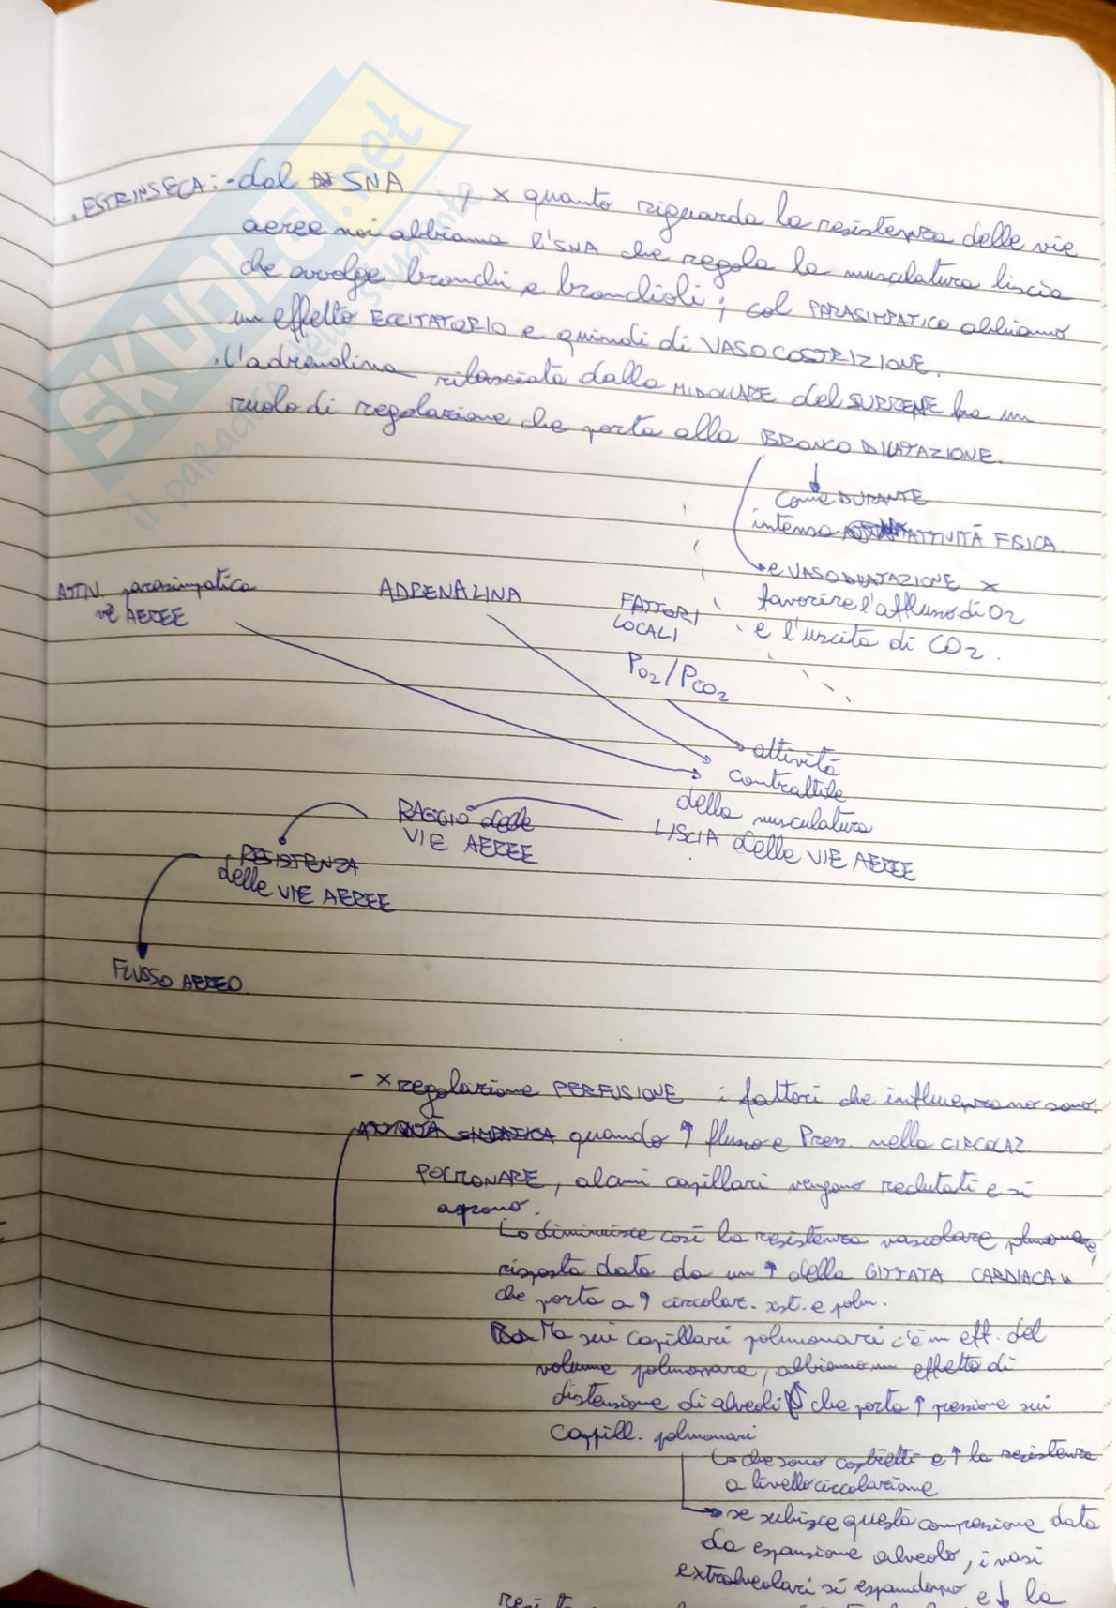 . ESTRINSECA: - dal SNA x quanto riguarda la resistenza delle vie
aeree noi abbiamo l'SNA che regola la muscolatura liscia
che avvolge bronchi e bronchioli; col PARASIMPATICO abbiamo
un effetto ECCITATORIO e quindi di VASOCOSTRIZIONE.
. L'adrenalina rilasciata dalla MIDOLLARE del SURRENE ha un
ruolo di regolazione che porta alla BRONCODILATAZIONE.
come DURANTE
intensa ATTIVITÀ FISICA
e VASODILATAZIONE x
favorire l'afflusso di O2
e l'uscita di CO2.
ATTIV. parasimpatica
vie AEREE
ADRENALINA
FATTORI
LOCALI
PO2/PCO2
attività
contrattile
della muscolatura
LISCIA delle VIE AEREE
RAGGIO delle
VIE AEREE
RESISTENZA
delle VIE AEREE
FLUSSO AEREO
- x regolazione PERFUSIONE i fattori che influenzano sono:
ATTIVITÀ SIMPATICA quando ↑ flusso e Press. nella CIRCOLAZ
POLMONARE, alcuni capillari vengono reclutati e si
aprono.
↳ diminuisce così la resistenza vascolare polmonare,
risposta data da un ↑ della GITTATA CARDIACA
che porta a ↑ circolaz. sist. e polm.
Ma sui capillari polmonari c'è un eff. del
volume polmonare, abbiamo un effetto di
distensione di alveoli che porta ↑ pressione sui
capill. polmonari
↳ che sono costretti e ↑ la resistenza
a livello circolazione
→ se subisce questa compressione data
da espansione alveolo, i vasi
extralveolari si espandono e ↓ la